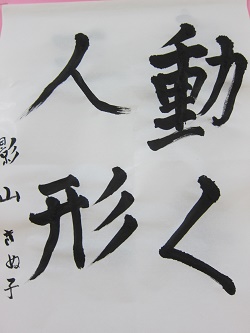 動く
人形
影山きぬ子